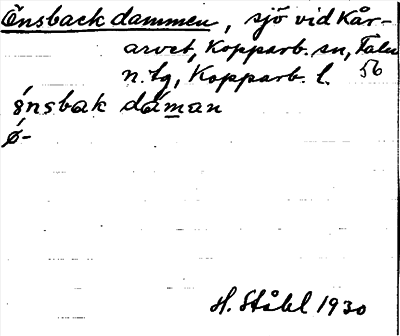 Önsback dammen, sjö vid Kår-
arvet, Kopparb. sn, Falu
n. tg, Kopparb. l. 56
ónsbak dáman
ǿ-
H. Ståhl 1930